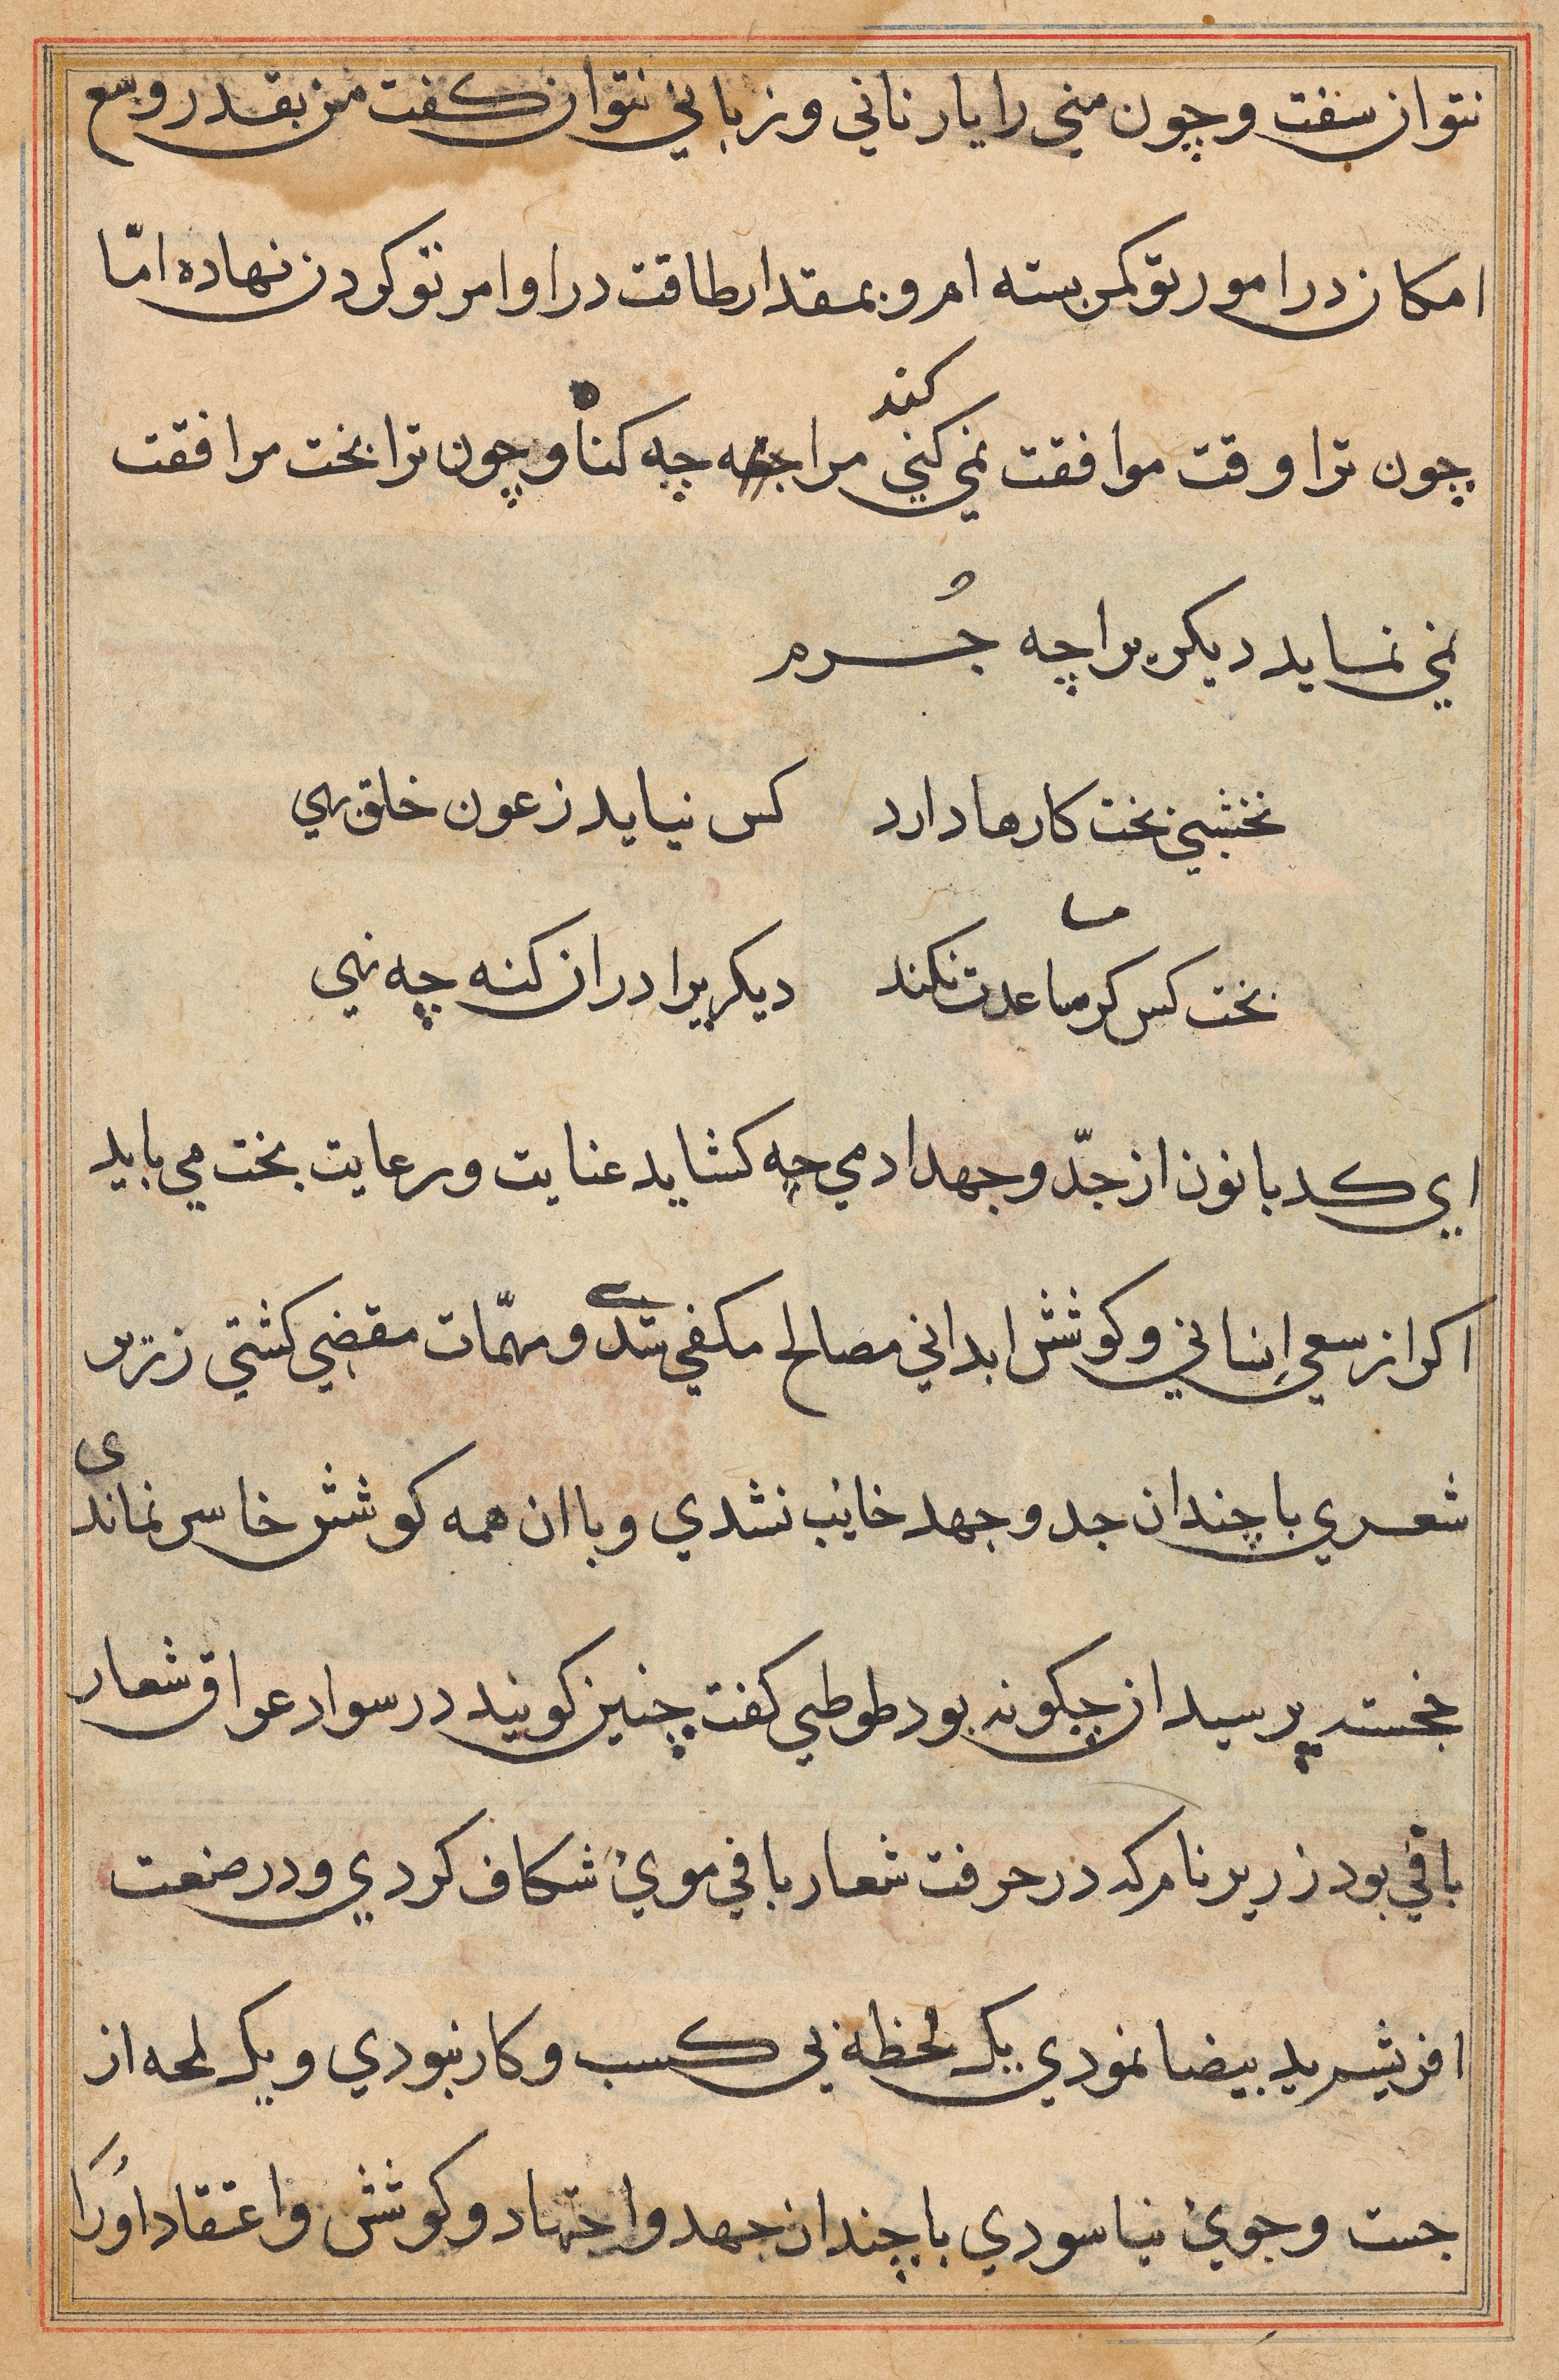 نتوان سفت و چون منی را یار نانی و زبانی نتوان کفت من بقدر وسع
امکان در امور تو کمر بسته ام و بمقدار طاقت در اوامر تو کردن نهاده امّا
کند
چون ترا وقت موافقت نمی کنی مرا چه چه کناه و چون ترا بخت مرافقت
نمی نماید دیکریرا چه جُرم
نخشبی بخت کارها دارد کس نیاید ز عون خلق بهی
بخت کس کر مساعدت نکند دیکریرا دران کنه چه نهی
ای کدبانون از جدّ و جهد ادمی چه کشاید عنایت و رعایت بخت می باید
اکر از سعی اِنسانی و کوشش ابدانی مصالح مکفی شدی و مهمّات مقضِی کشتی زریر
شعری با چندان جد و جهد خایب نشدی و با ان همه کوشش خاسر نماندی
خجسته پرسید ان چکونه بود طوطی کفت چنین کویند در سواد عراق شعار
بافی بود زریر نام که در حرفت شعار بافی موئ شکاف کردی و در صنعت
افریشم ید بیضا نمودی یک لحظه بی کسب و کار نبودی و یک لمحه از
جست و جوئ نیاسودی با چندان جهد و اجتهاد و کوشش و اعتقاد اُورَا